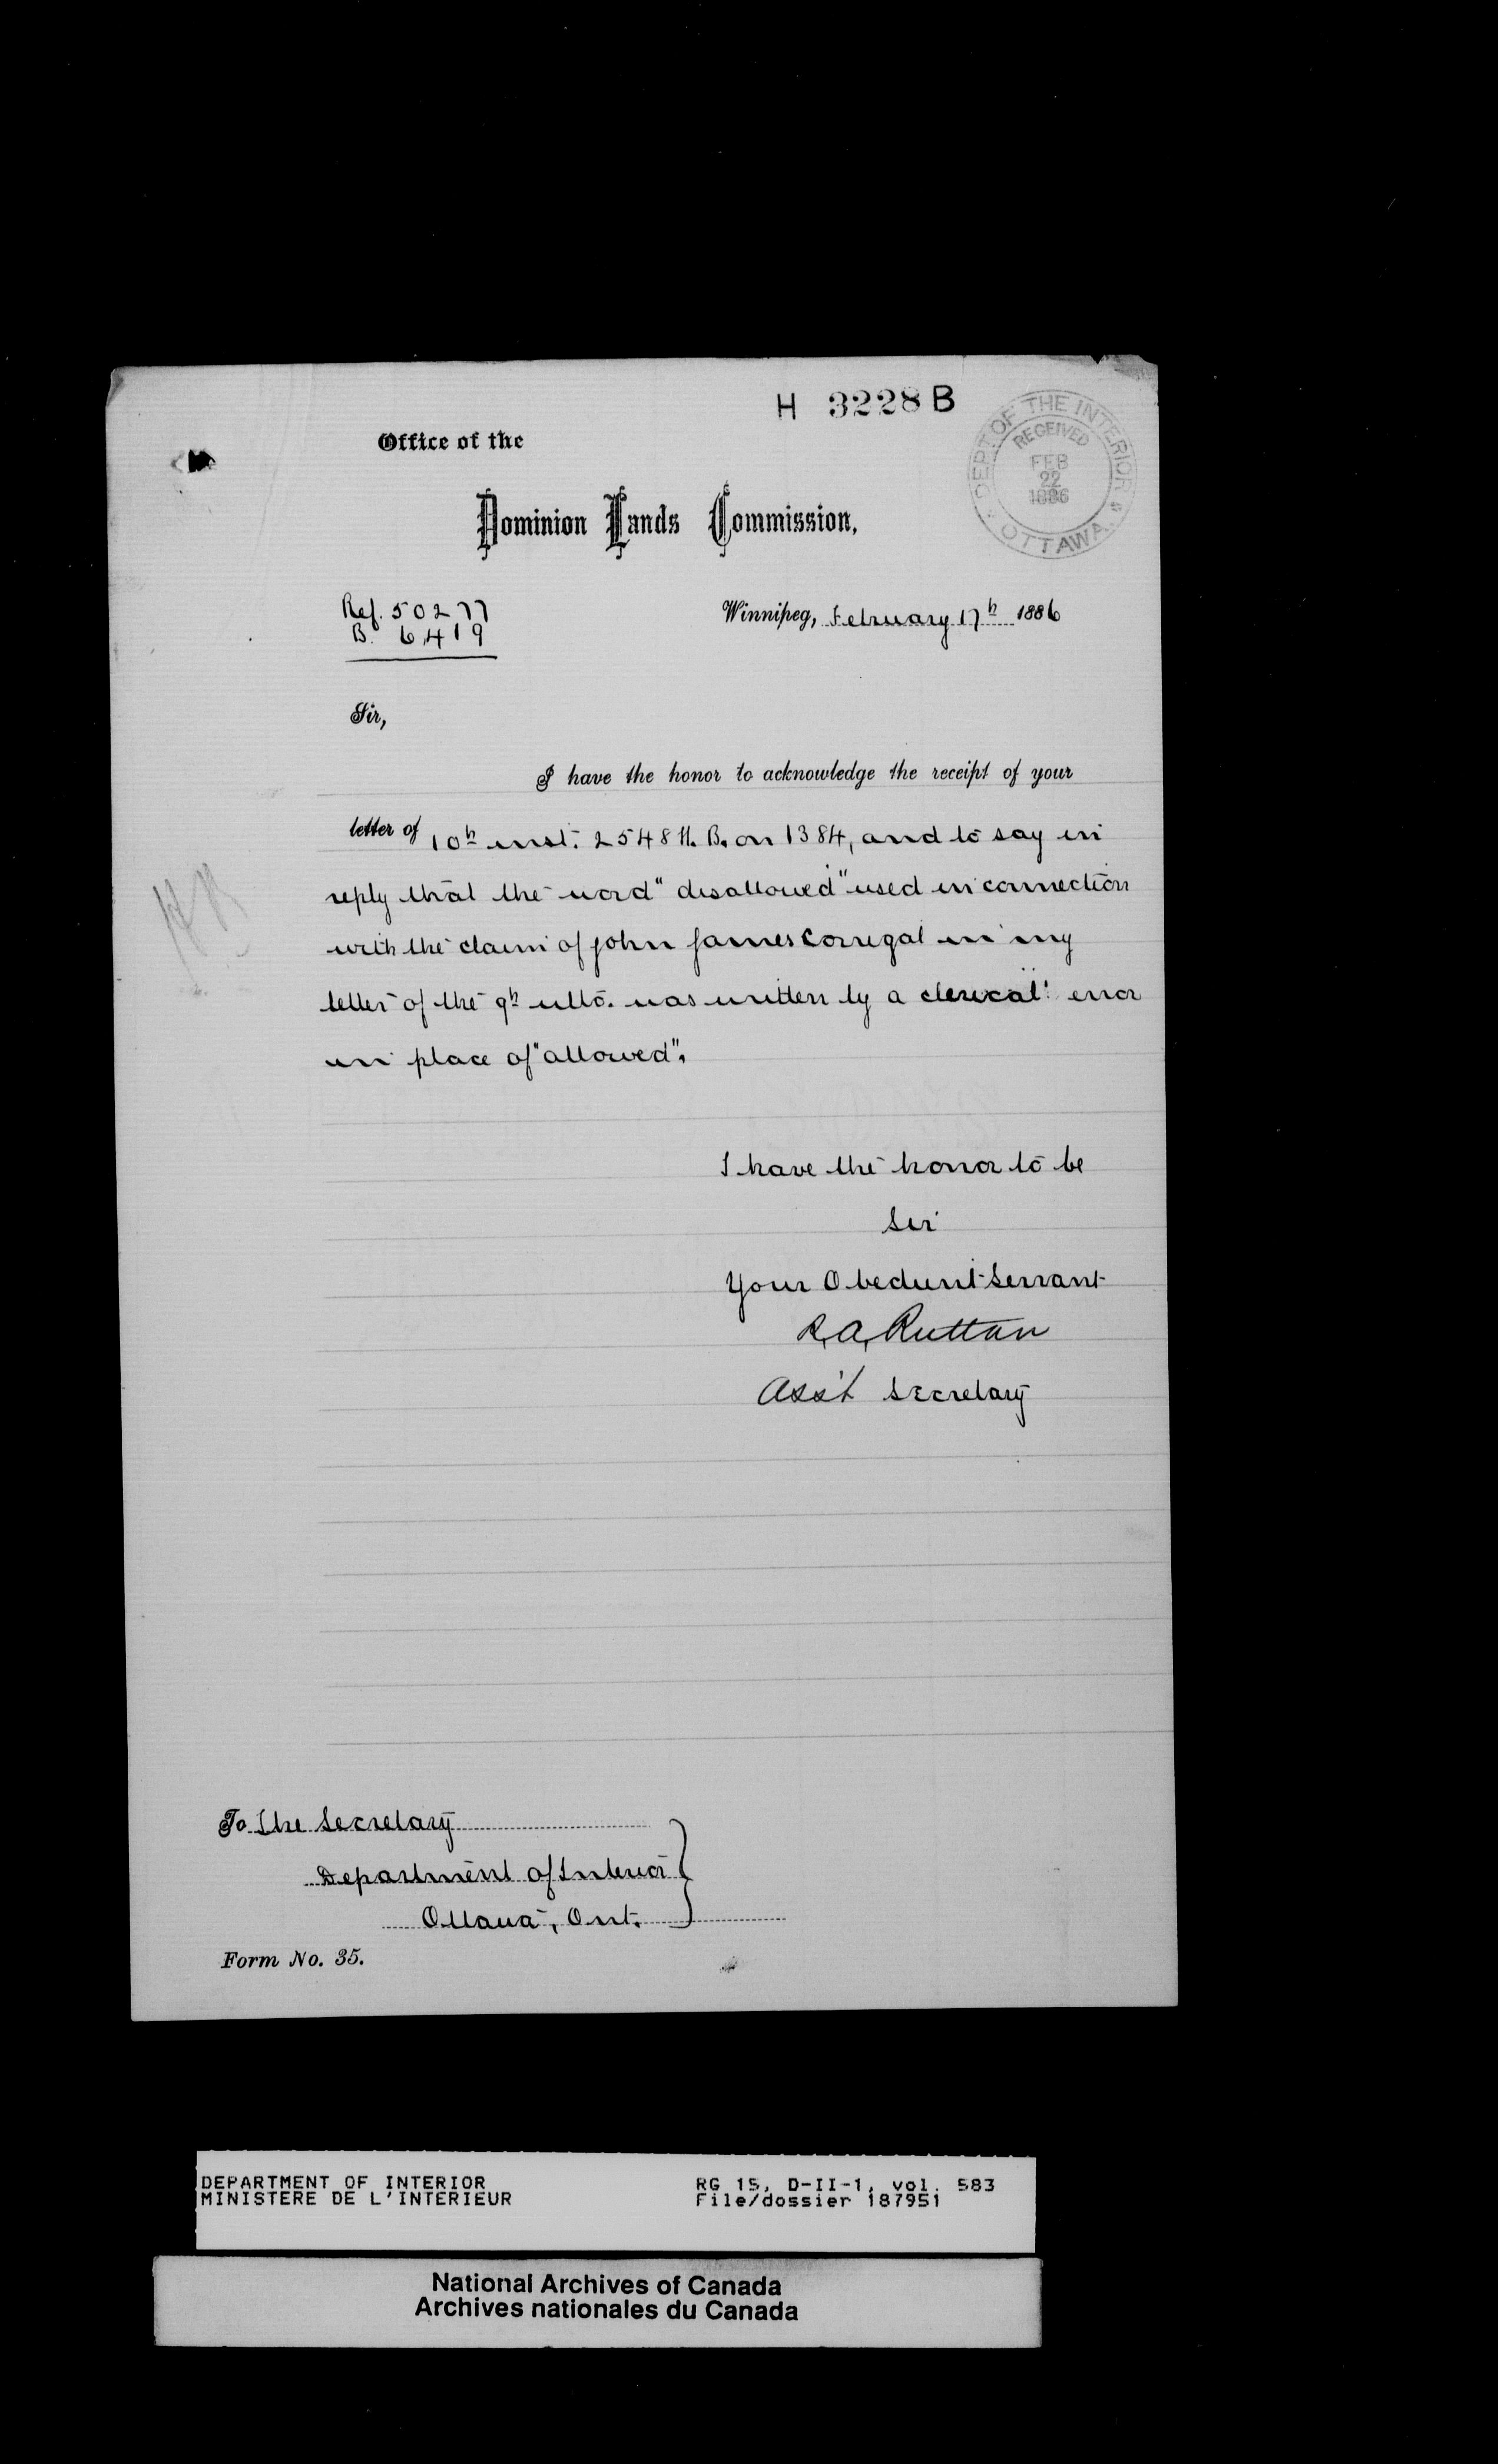 H 3228 B
DEPT OF THE INTERIOR
RECEIVED
FEB
22
1886
OTTAWA
Office of the
Dominion Lands Commission,
Ref. 50277
B. 6419
Winnipeg, February 17h 1886
Sir,
I have the honor to acknowledge the receipt of your
letter of 10h inst. 2548 H. B. on 1384, and to say in
reply that the word "disallowed" used in connection
with the claim of John James Corrigal in my
letter of the 9h ulto. was written by a clerical error
in place of "allowed".
I have the honor to be
Sir
Your Obedient Servant
R. A. Ruttan
Ass't Secretary
To The Secretary
Department of Interior
Ottawa, Ont.
Form No. 35.
DEPARTMENT OF INTERIOR
MINISTERE DE L'INTERIEUR
RG 15, D-II-1, vol. 583
File/dossier 187951
National Archives of Canada
Archives nationales du Canada